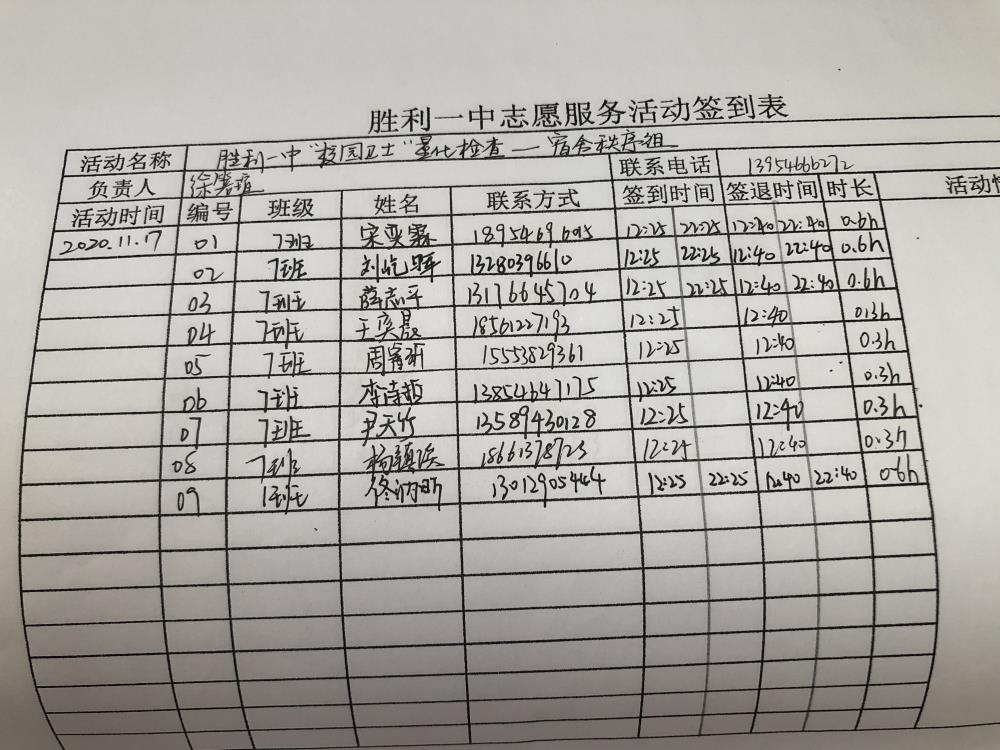 胜利一中志愿服务活动签到表
活动名称 胜利一中"校园卫士"量化检查—宿舍秩序组
负责人 联系电话 13954666272
活动时间 编号 班级 姓名 联系方式 签到时间 签退时间 时长 活动
2020.11.17 01 7班 宋奕霖 18954691695 12:25 22:25 12:40 22:40 0.6h
02 7班 刘屹晖 13280396610 12:25 22:25 12:40 22:40 0.6h
03 7班 薛志平 13176645704 12:25 22:25 12:40 22:40 0.6h
04 7班 王奕晟 18561227193 12:25 12:40 0.3h
05 7班 15553829361 12:25 12:40 0.3h
06 7班 李诗哲 13854647175 12:25 12:40 0.3h
07 7班 尹天竹 13589430128 12:25 12:40 0.3h
08 7班 18661378723 12:25 12:40 0.3h
09 1班 13012905444 12:25 22:25 12:40 22:40 0.6h